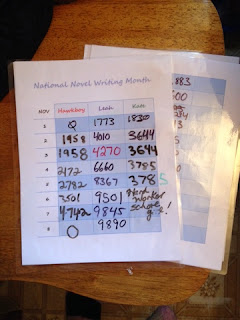 National Novel Writing Month
NOV Hawkboy Leah Kate
1 0 1773 1830
2 1958 4010 3644
3 1958 4270 3644
4 2172 6660 3785
5 2782 8367 3785
6 3501 9501
7 4742 9845
8 0 9890
883
500